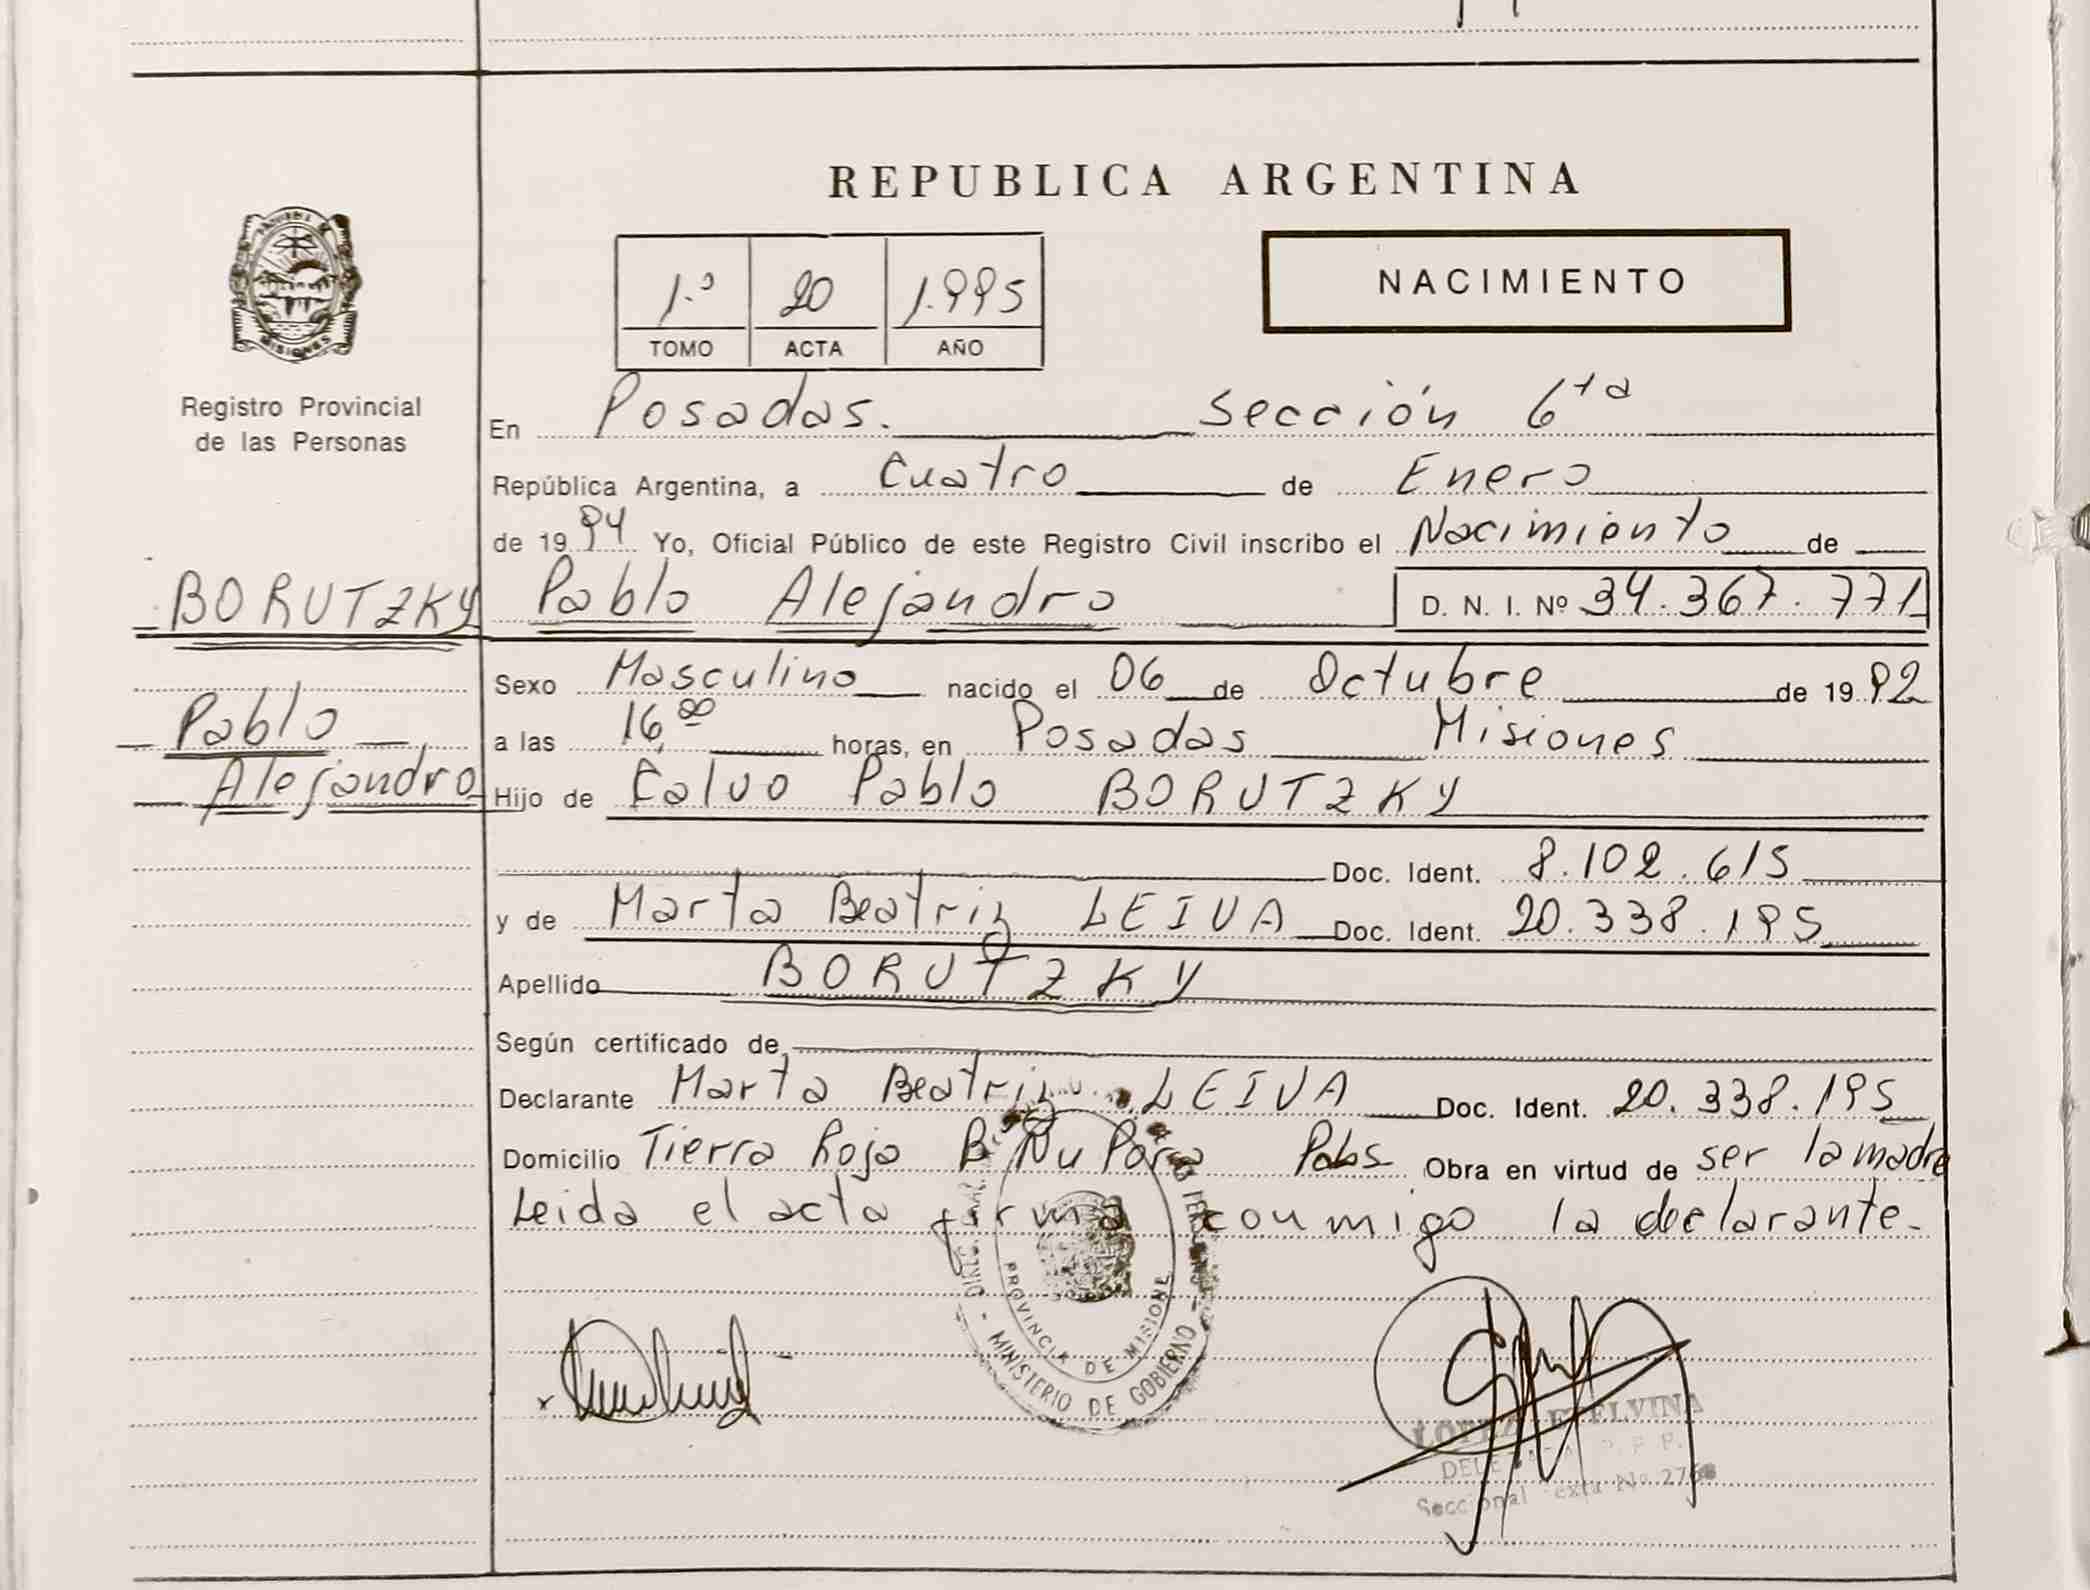 REPUBLICA ARGENTINA
MISIONES
Registro Provincial
de las Personas
1.º 20 1.995
TOMO ACTA AÑO
NACIMIENTO
En Posadas. Sección 6ta
República Argentina, a Cuatro de Enero
de 1994 Yo, Oficial Público de este Registro Civil inscribo el Nacimiento de
BORUTZKY Pablo Alejandro D. N. I. Nº 34.367.771
Sexo Masculino nacido el 06 de Octubre de 1992
Pablo
a las 16,00 horas, en Posadas Misiones
Alejandro
Hijo de Calvo Pablo BORUTZKY
Doc. Ident. 8.102.615
y de Marta Beatriz LEIVA Doc. Ident. 20.338.195
Apellido BORUTZKY
Según certificado de
Declarante Marta Beatriz LEIVA Doc. Ident. 20.338.195
Domicilio Tierra Roja Bº Ñu Porá Pdas Obra en virtud de ser la madre
Leida el acta firma conmigo la declarante.
PROVINCIA DE MISIONES
MINISTERIO DE GOBIERNO
ETELVINA
Seccional Nº